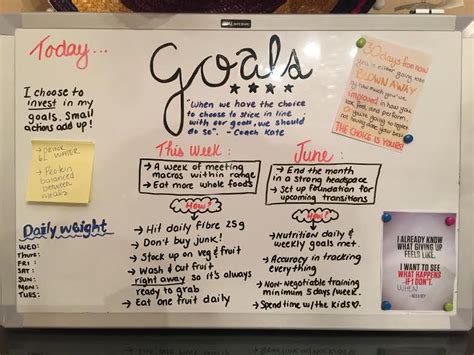 Today...
I choose to
invest in my
goals. Small
actions add up!
Goals
"When we have the choice
to choose to stick in line
with our goals, we should
do so". - Coach Kate
30 days from now
you're either going to be
BLOWN AWAY
by how much you've
improved in how you
look, feel, and perform
or you're going to regret
not doing your best.
THE CHOICE IS YOURS!
- DRINK
6L WATER
- Protein
balanced
between
meals
This Week:
→ A week of meeting
macros within range
→ Eat more whole foods
How?
→ Hit daily fibre 25g
→ Don't buy junk!
→ Stock up on veg & fruit
→ Wash & cut fruit
right away so it's always
ready to grab
→ Eat one fruit daily
June:
→ End the month
in a strong headspace
→ Set up foundation for
upcoming transitions
How?
→ Nutrition daily &
weekly goals met.
→ Accuracy in tracking
everything
→ Non-negotiable training
minimum 5 days/week.
→ Spend time w/the kids
Daily Weight
WED:
THUR:
FRI:
SAT:
SUN:
MON:
TUES:
I ALREADY KNOW
WHAT GIVING UP
FEELS LIKE.
I WANT TO SEE
WHAT HAPPENS
IF I DON'T.
WHEN